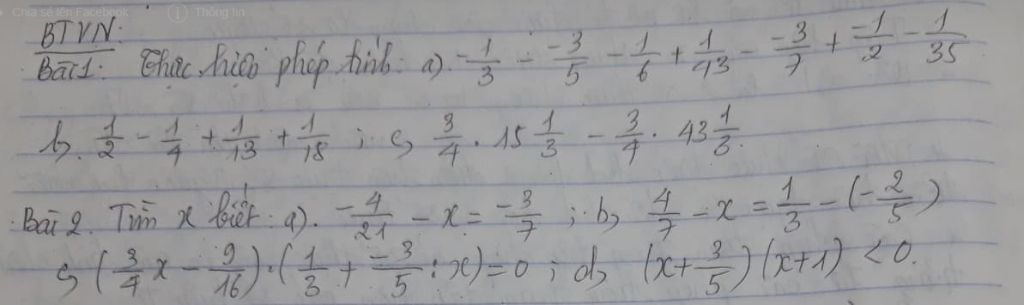 Chia sẻ lên Facebook Thông tin
BTVN:
Bài 1: Thực hiện phép tính: a). -1/3 - -3/5 - 1/6 + 1/43 - -3/7 + -1/2 - 1/35
b, 1/2 - 1/4 + 1/13 + 1/18 ; c, 3/4 . 15 1/3 - 3/4 . 43 1/3.
Bài 2. Tìm x biết: a). -4/21 - x = -3/7 ; b, 4/7 - x = 1/3 - (-2/5)
c, (3/4 x - 9/16) . (1/3 + -3/5 : x) = 0 ; d, (x + 3/5) (x+1) < 0.